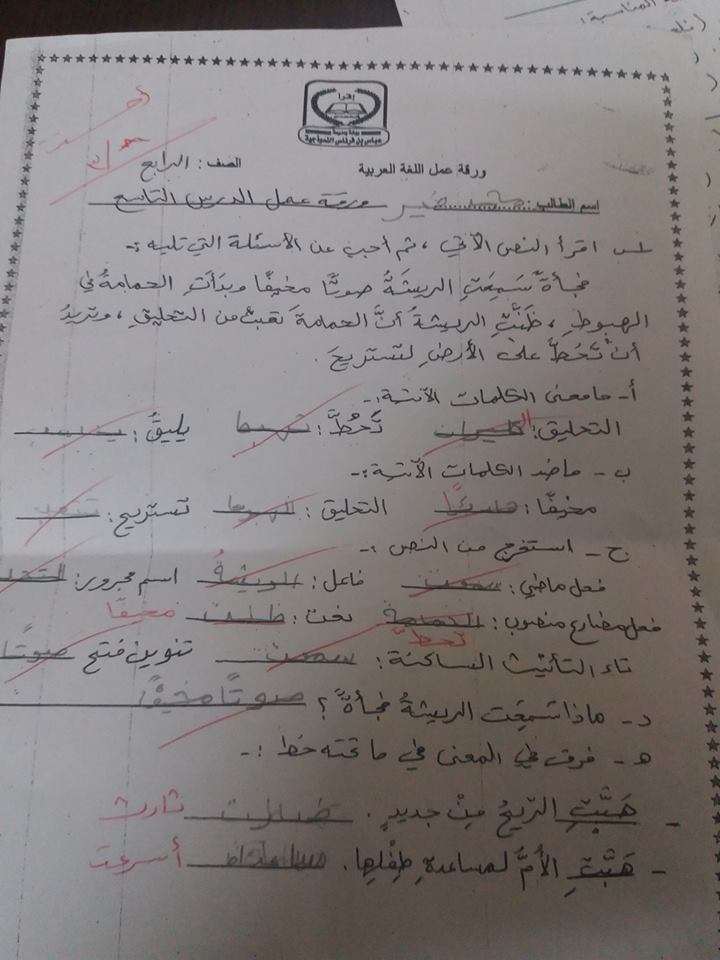 المناسبة:
إقرأ
ورقة عمل اللغة العربية
الصف: الرابع
اسم الطالب: ورقة عمل الدرس التاسع
١ـ اقرأ النص الآتي، ثم أجب عن الأسئلة التي تليه :-
فجأةً سَمِعَتِ الريشَةُ صوتًا مخيفًا وبدَأتِ الحمامةُ في
الهبوطِ، ظَنَّتِ الريشةُ أنَّ الحمامةَ تعبتْ من التحليقِ، وتريدُ
أنْ تَحُطَّ على الأرضِ لتستريحَ.
أ- ما معنى الكلمات الآتية:-
التحليق: الطيران تَحُطَّ: تهبط يليقُ:
ب- ما ضد الكلمات الآتية:-
مخيفًا: التحليق: الهبوط تستريح: تتعب
ج- استخرج من النص :-
فعل ماضي: سمعت فاعل: الريشةُ اسم مجرور:
فعل مضارع منصوب: الحمامة تحطَّ نعت: مخيفًا
تاء التأنيث الساكنة: سمعت تنوين فتح صوتًا
د- ماذا سَمِعَت الريشةُ فجأةً؟ صوتًا مخيفًا
هـ- فرق في المعنى في ما تحته خط :-
- هَبَّتِ الرّيحُ مِنْ جديدٍ. ثارت
- هَبَّتِ الأُمُّ لمساعدةِ طِفْلِها. أسرعت